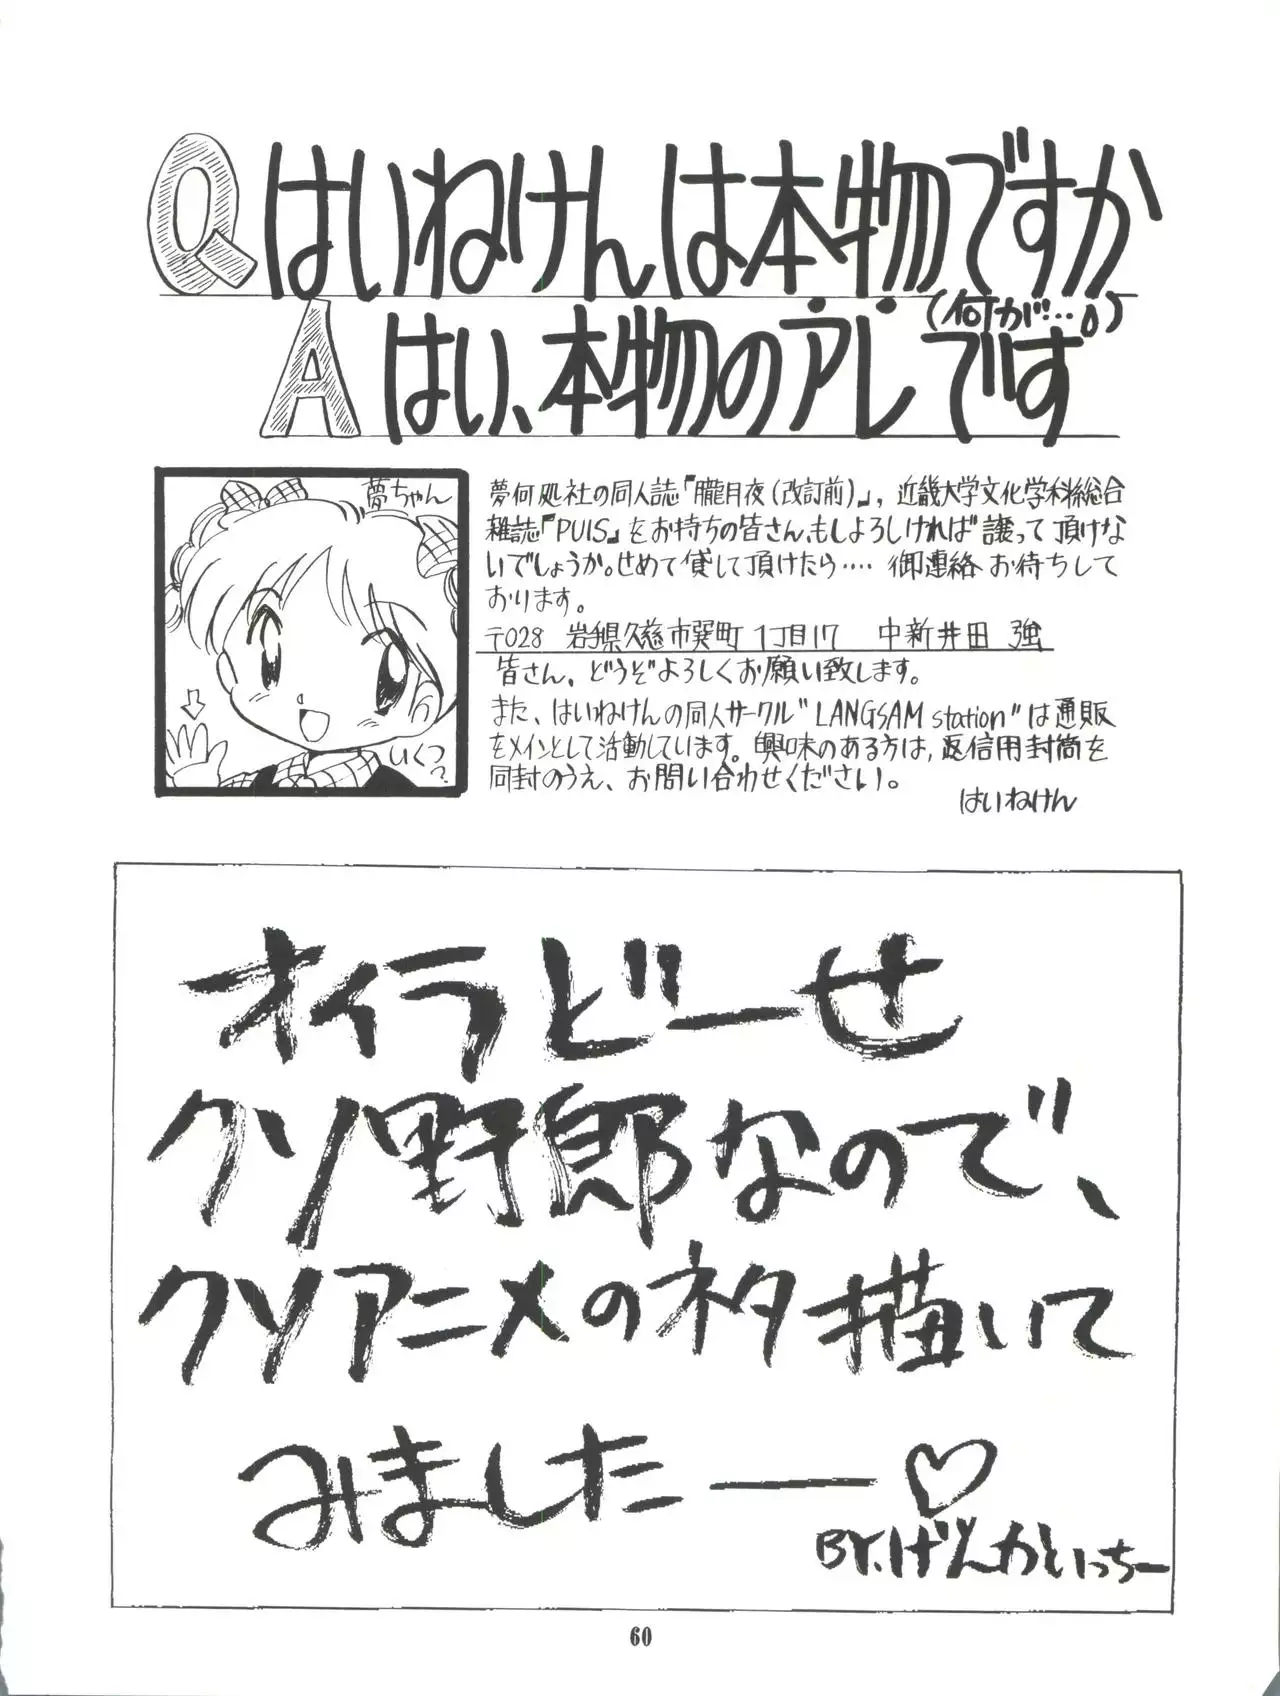 Q はいねけんは本物ですか
(何が…)
A はい、本物のアレです
夢ちゃん
いくつ?
夢何処社の同人誌『朧月夜(改訂前)』, 近畿大学文化学科系総合
雑誌『PUIS』をお持ちの皆さん、もしよろしければ譲って頂けな
いでしょうか。せめて貸して頂けたら‥‥ 御連絡お待ちして
おります。
〒028 岩手県久慈市巽町1丁目17 中新井田 強
皆さん、どうぞよろしくお願い致します。
また、はいねけんの同人サークル"LANGSAM station"は通販
をメインとして活動しています。興味のある方は, 返信用封筒を
同封のうえ、お問い合わせください。
はいねけん
オイラどーせ
クソ野郎なので、
クソアニメのネタ描いて
みましたー♡
BY.げんかといっちー
60